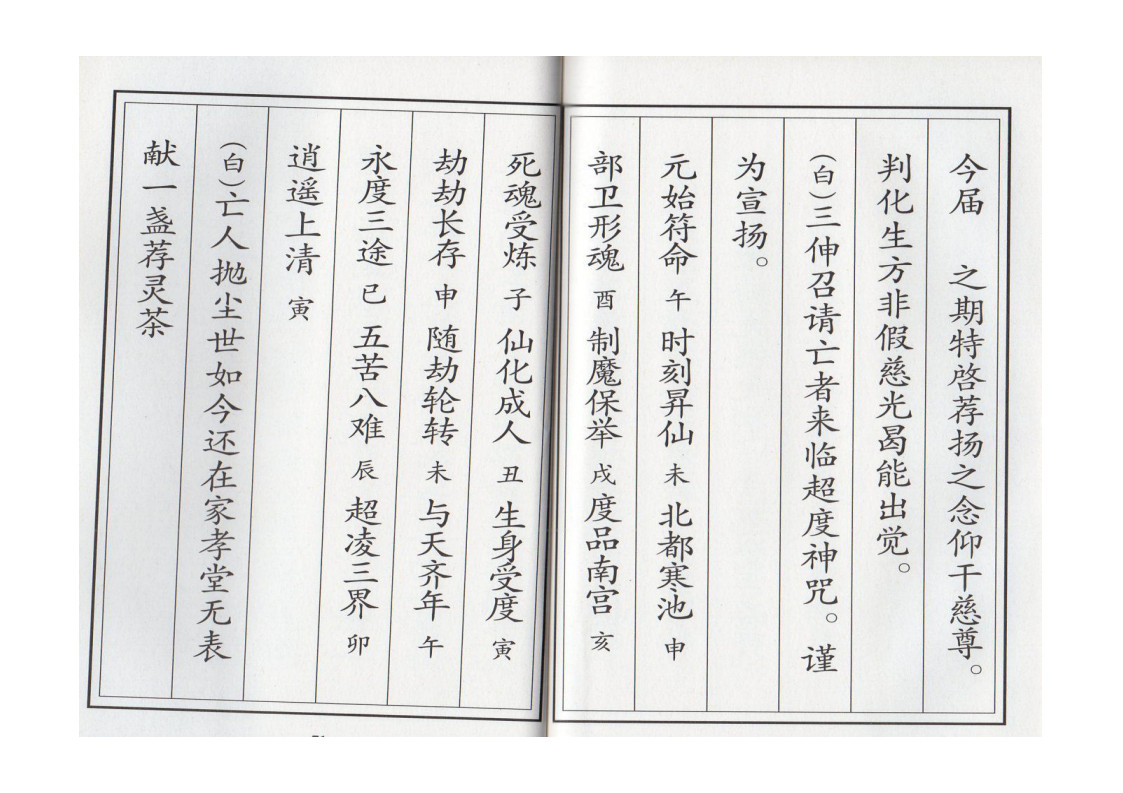 今届　之期特启荐扬之念仰干慈尊。
判化生方非假慈光曷能出觉。
（白）三伸召请亡者来临超度神咒。谨
为宣扬。
元始符命 午 时刻昇仙 未 北都寒池 申
部卫形魂 酉 制魔保举 戌 度品南宫 亥
死魂受炼 子 仙化成人 丑 生身受度 寅
劫劫长存 申 随劫轮转 未 与天齐年 午
永度三途 巳 五苦八难 辰 超凌三界 卯
逍遥上清 寅
（白）亡人抛尘世如今还在家孝堂无表
献一盏荐灵茶